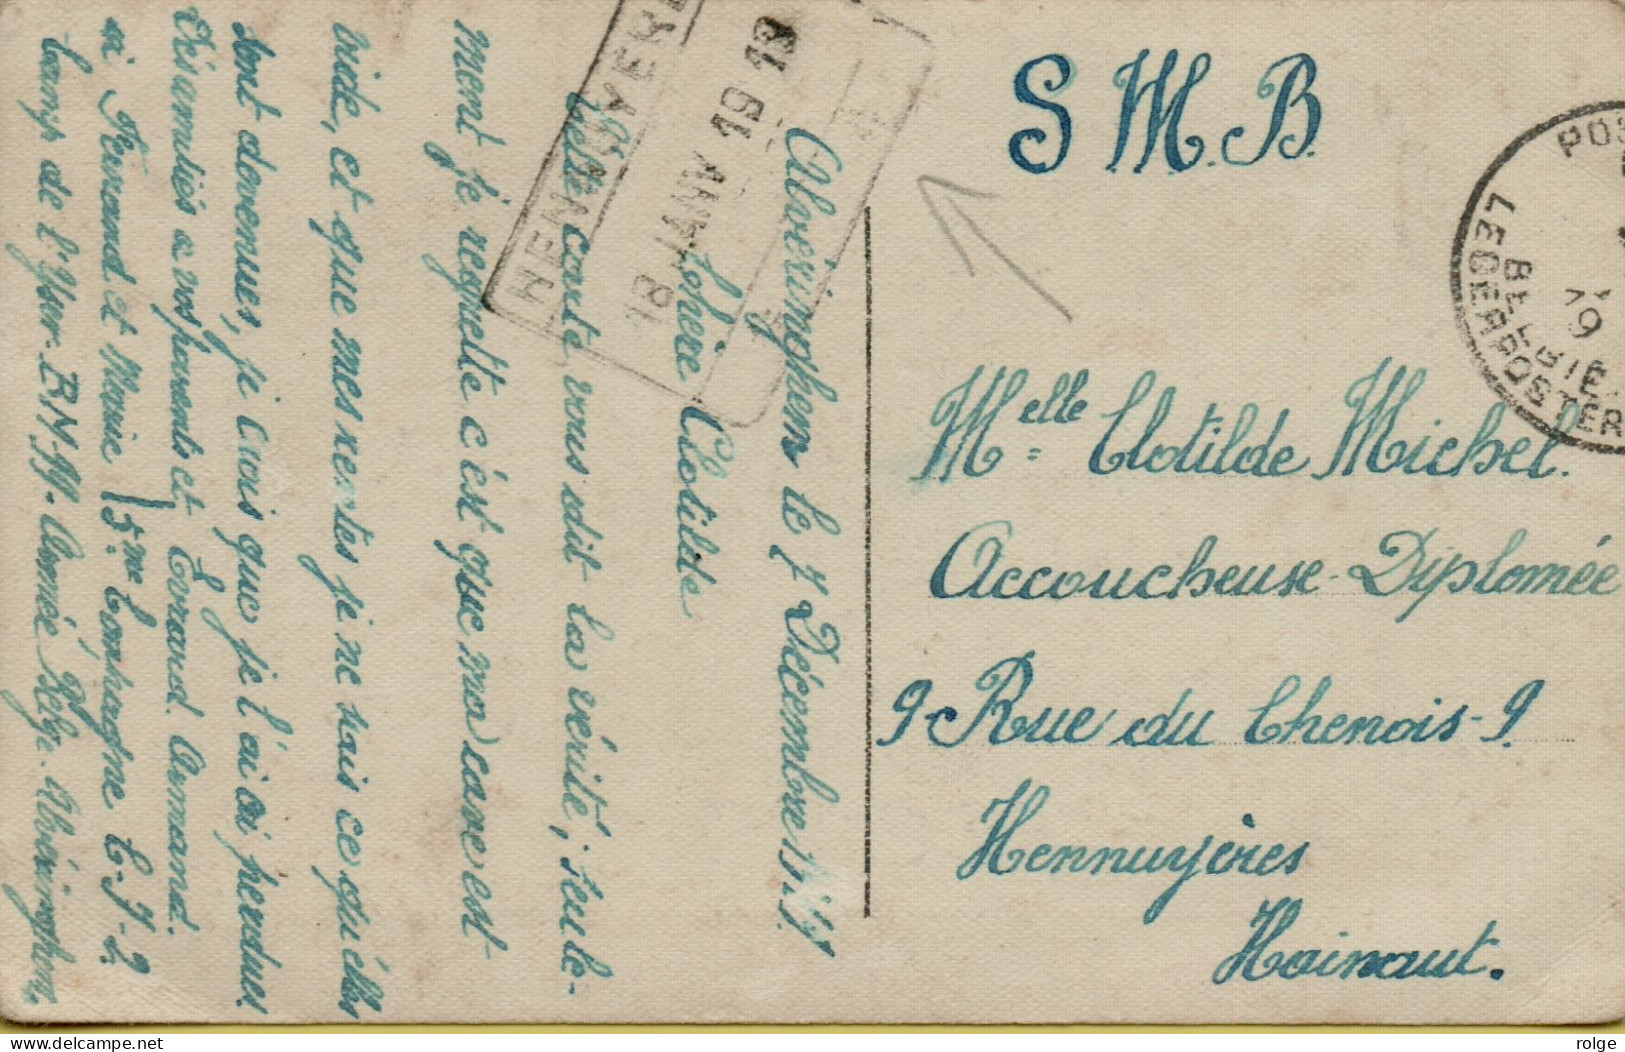 S.M.B.
Melle Clotilde Michel.
Accoucheuse-Diplomée
9-Rue du Chenois-9.
Hennuyères
Hainaut.
HENNUYERE
18 JANV 1919
POS
LEGERPOSTER
BELGIE
19
Alveringhem le 7 Décembre
Chère Clotilde
cette carte vous dit la vérité, seule-
ment je regrette c'est que ma cave est
vide, et que mes xertes je ne sais ce qu'elles
sont devenues, je crois que je l'ai ai perdues
Vis amitiés a vos parents et Evrard. Armand.
ai Fernand et Marie 5me Compagne C-I-2
Camp de l'Yser-BN-M-Armée Belge. Alveringhem.